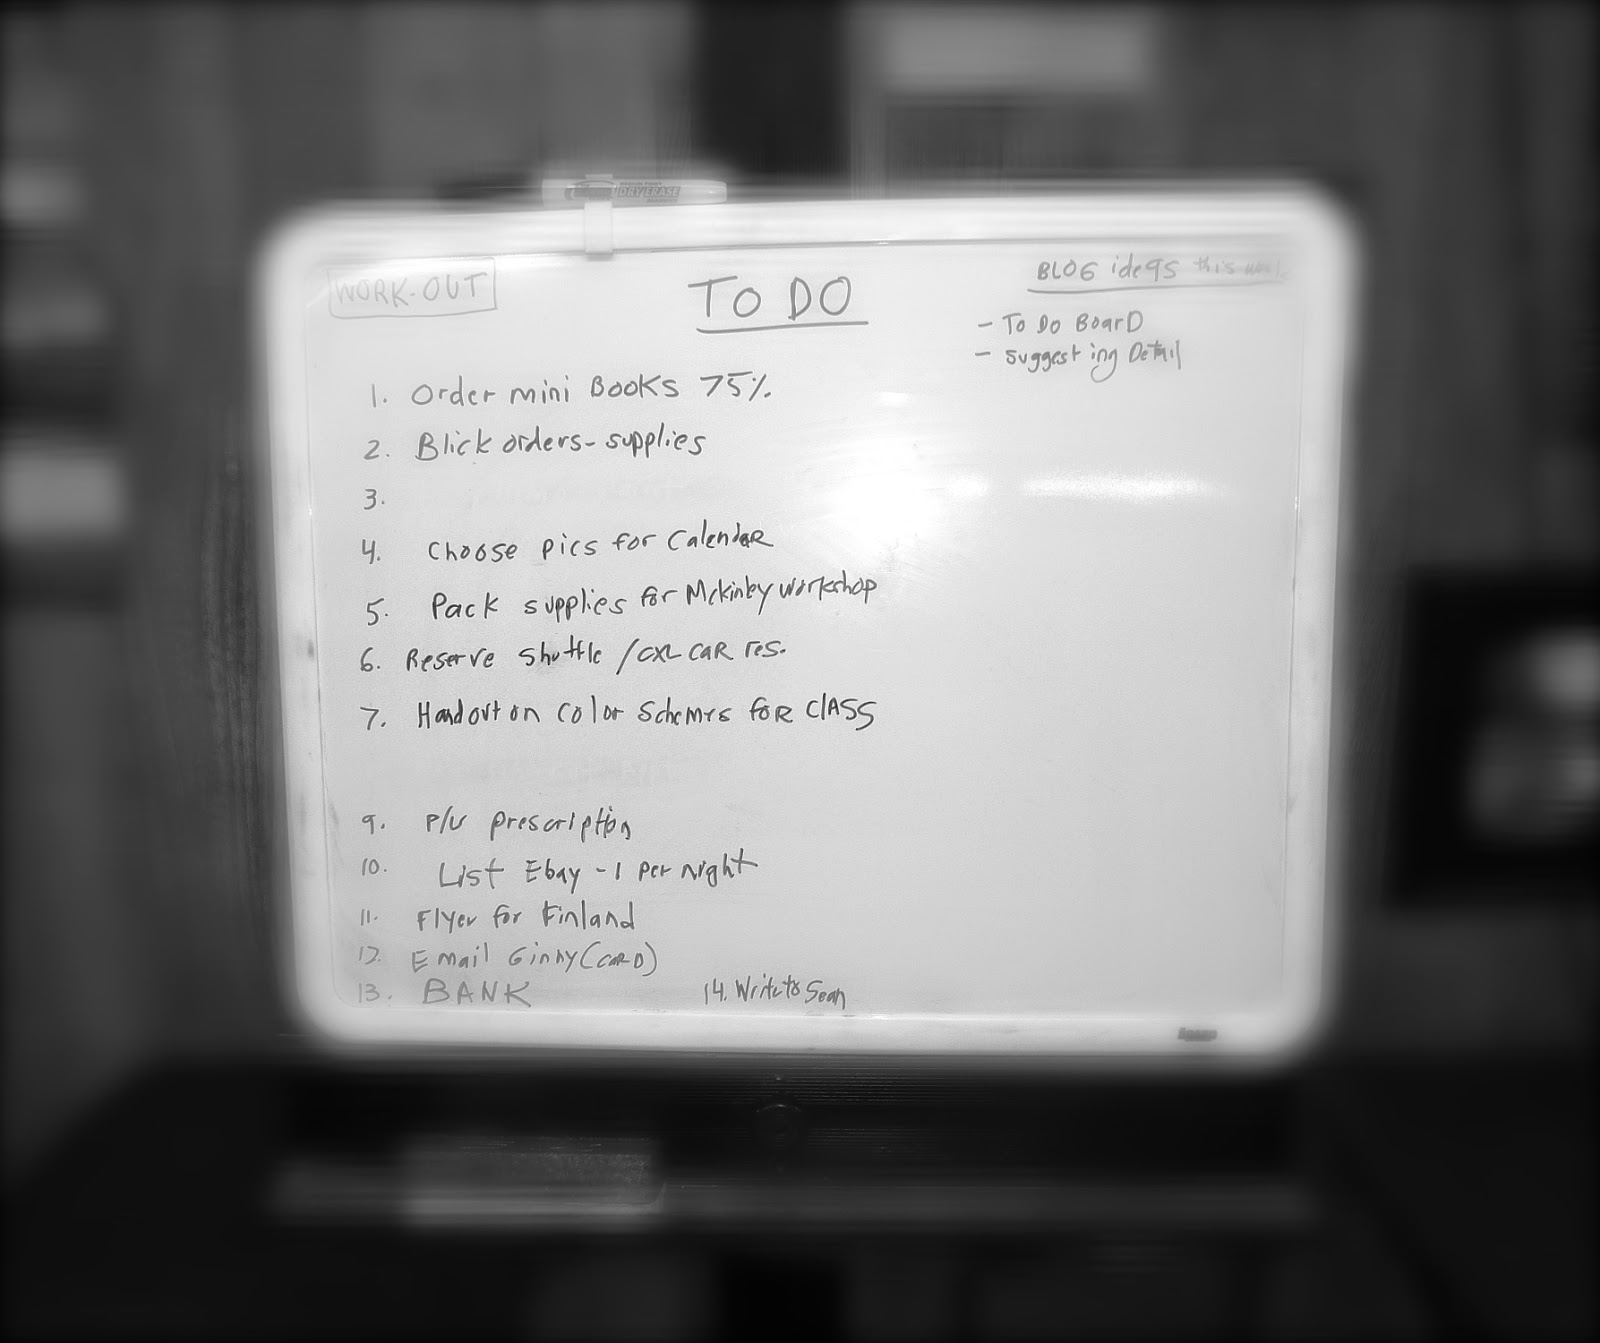 DRY ERASE
WORK-OUT
TO DO
BLOG ideas this
- To Do BoarD
- Suggesting Detail
1. Order mini Books 75%
2. Blick orders- supplies
3.
4. Choose pics for Calendar
5. Pack supplies for Mckinley workshop
6. Reserve Shuttle /CXL CAR res.
7. Handout on Color Schemes FOR CLASS
9. P/U prescription
10. List Ebay - 1 per night
11. Flyer for Finland
12. Email Ginny (CARD)
13. BANK
14. Write to Sean